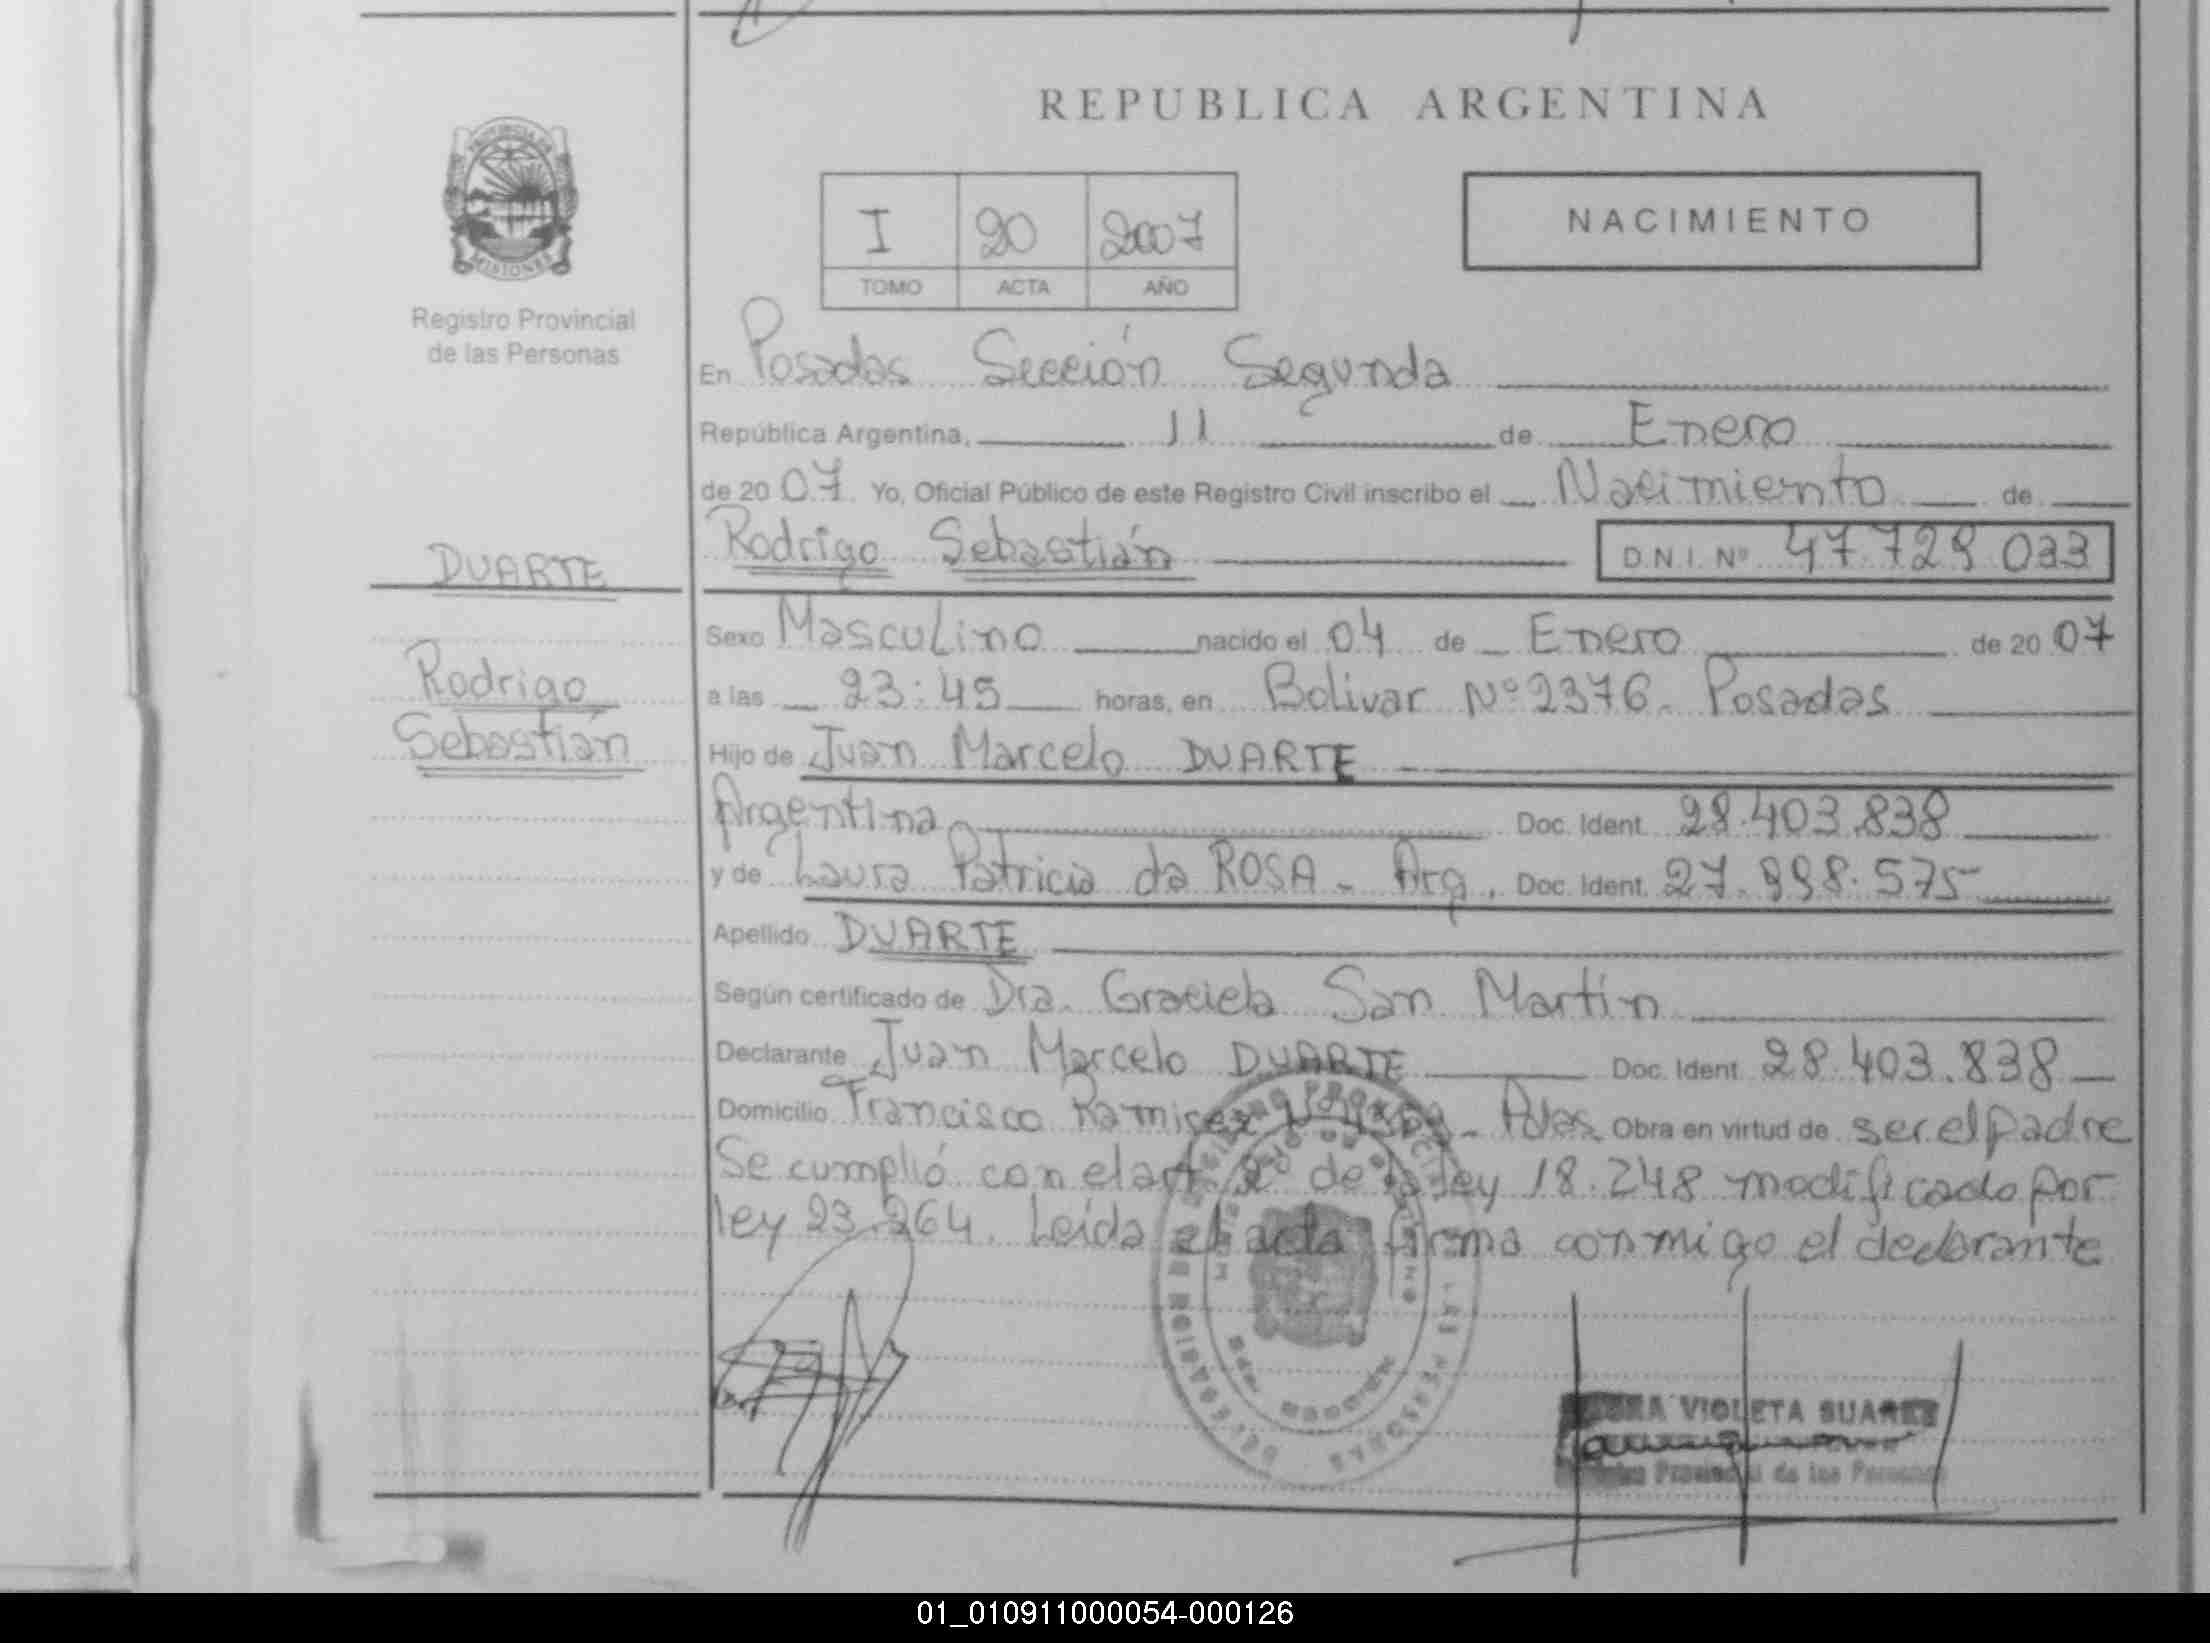 REPUBLICA ARGENTINA
PROVINCIA DE
MISIONES
Registro Provincial
de las Personas
I 20 2007
TOMO ACTA AÑO
NACIMIENTO
En Posadas Sección Segunda
República Argentina, 11 de Enero
de 20 07. Yo, Oficial Público de este Registro Civil inscribo el Nacimiento de
Rodrigo Sebastián D.N.I. Nº 47.729.033
DUARTE
Rodrigo
Sebastián
Sexo Masculino nacido el 04 de Enero de 20 07
a las 23:45 horas, en Bolivar Nº 2376. Posadas
Hijo de Juan Marcelo DUARTE
Argentina Doc. Ident. 28.403.838
y de Laura Patricia da ROSA - Arg. Doc. Ident. 27.998.575
Apellido DUARTE
Según certificado de Dra. Graciela San Martín
Declarante Juan Marcelo DUARTE Doc. Ident. 28.403.838
Domicilio Francisco Ramirez - Pdas. Obra en virtud de ser el padre
Se cumplió con el art 2º de la ley 18.248 modificado por
ley 23.264. Leída el acta firma conmigo el declarante
VIOLETA SUAREZ
Provincial de las Personas
01_010911000054-000126